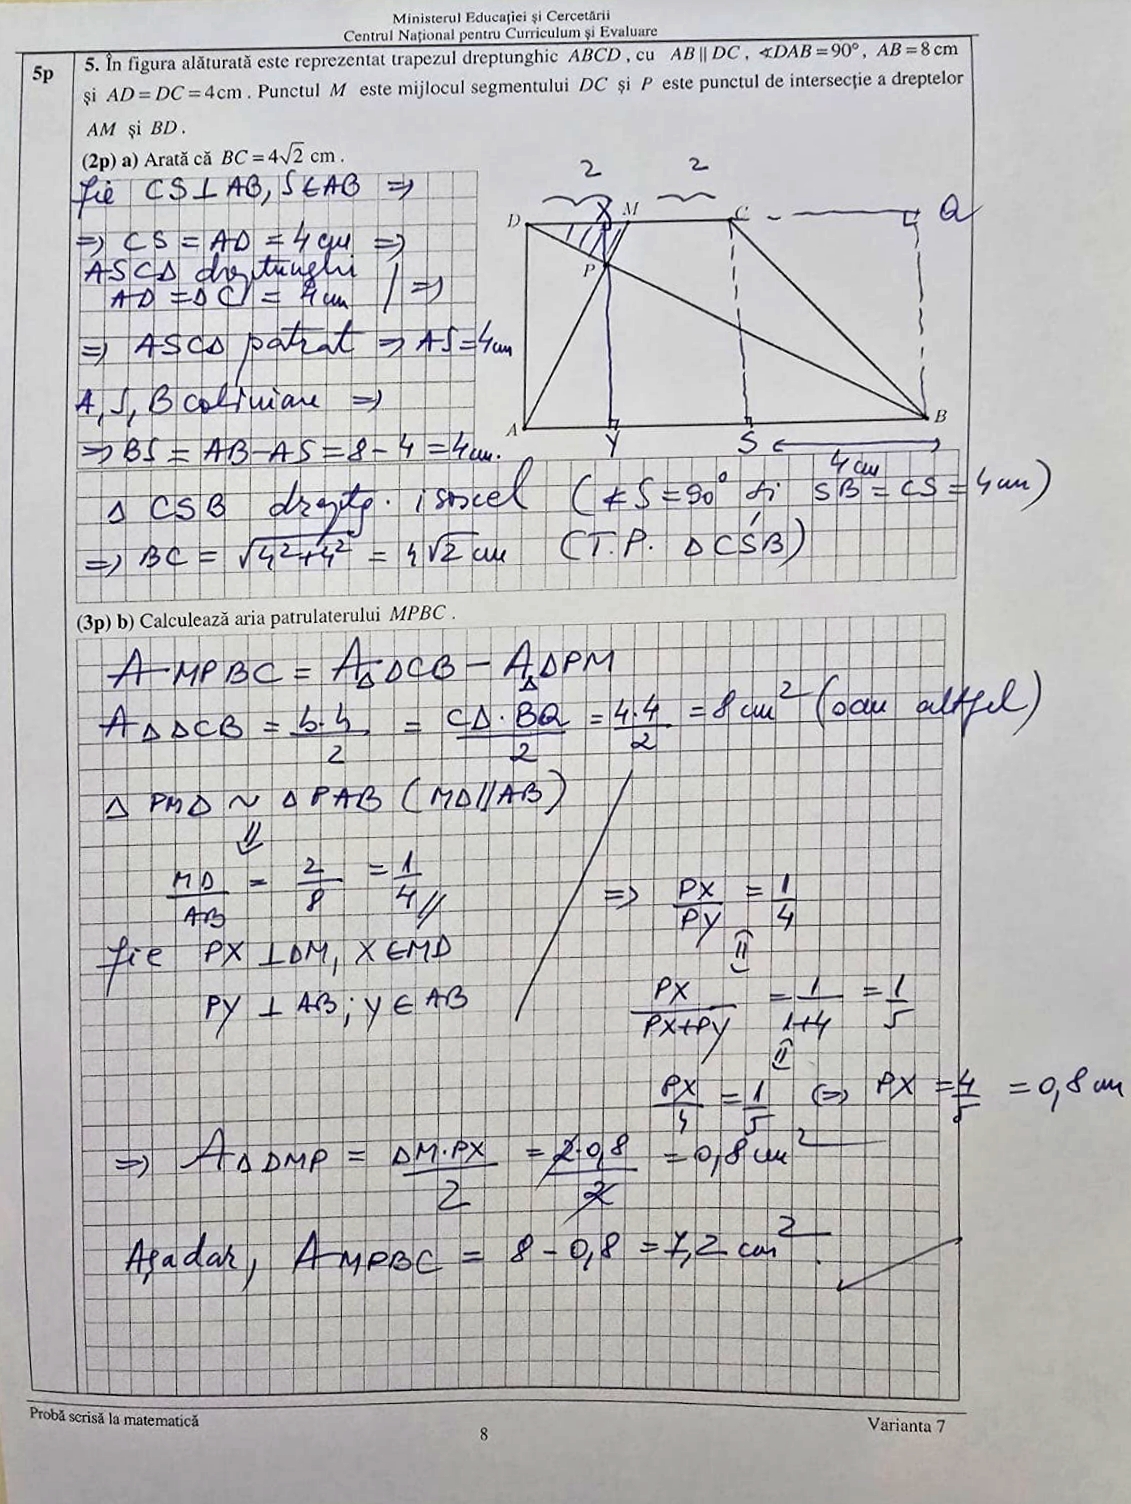 Ministerul Educației și Cercetării
Centrul Național pentru Curriculum și Evaluare
5p
5. În figura alăturată este reprezentat trapezul dreptunghic ABCD, cu AB ∥ DC, ∢DAB = 90°, AB = 8 cm
și AD = DC = 4 cm. Punctul M este mijlocul segmentului DC și P este punctul de intersecție a dreptelor
AM și BD.
(2p) a) Arată că BC = 4√2 cm.
fie CS⊥AB, S∈AB ⇒
⇒ CS = AD = 4 cm ⇒
ASCD dreptunghi
AD = DC = 4 cm | ⇒
⇒ ASCD pătrat ⇒ AS = 4 cm
A, S, B coliniare ⇒
⇒ BS = AB − AS = 8 − 4 = 4 cm.
2 2
D X M C Q
P
A Y S B
4 cm
Δ CSB dreptg. isoscel (∢S = 90° și SB = CS = 4 cm)
⇒ BC = √4²+4² = 4√2 cm (T.P. ΔCSB)
(3p) b) Calculează aria patrulaterului MPBC.
A MPBC = AΔ DCB − AΔ DPM
A Δ DCB = b·h/2 = CD·BQ/2 = 4·4/2 = 8 cm² (sau altfel)
Δ PMD ~ Δ PAB (MD//AB)
⇓
MD/AB = 2/8 = 1/4
⇒ PX/PY = 1/4
⇓
fie PX ⊥ DM, X∈MD
PY ⊥ AB; Y∈AB
PX/PX+PY = 1/1+4 = 1/5
⇓
PX/4 = 1/5 ⇔ PX = 4/5 = 0,8 cm
⇒ A Δ DMP = DM·PX/2 = 2·0,8/2 = 0,8 cm²
Așadar, A MPBC = 8 − 0,8 = 7,2 cm².
Probă scrisă la matematică
Varianta 7
8